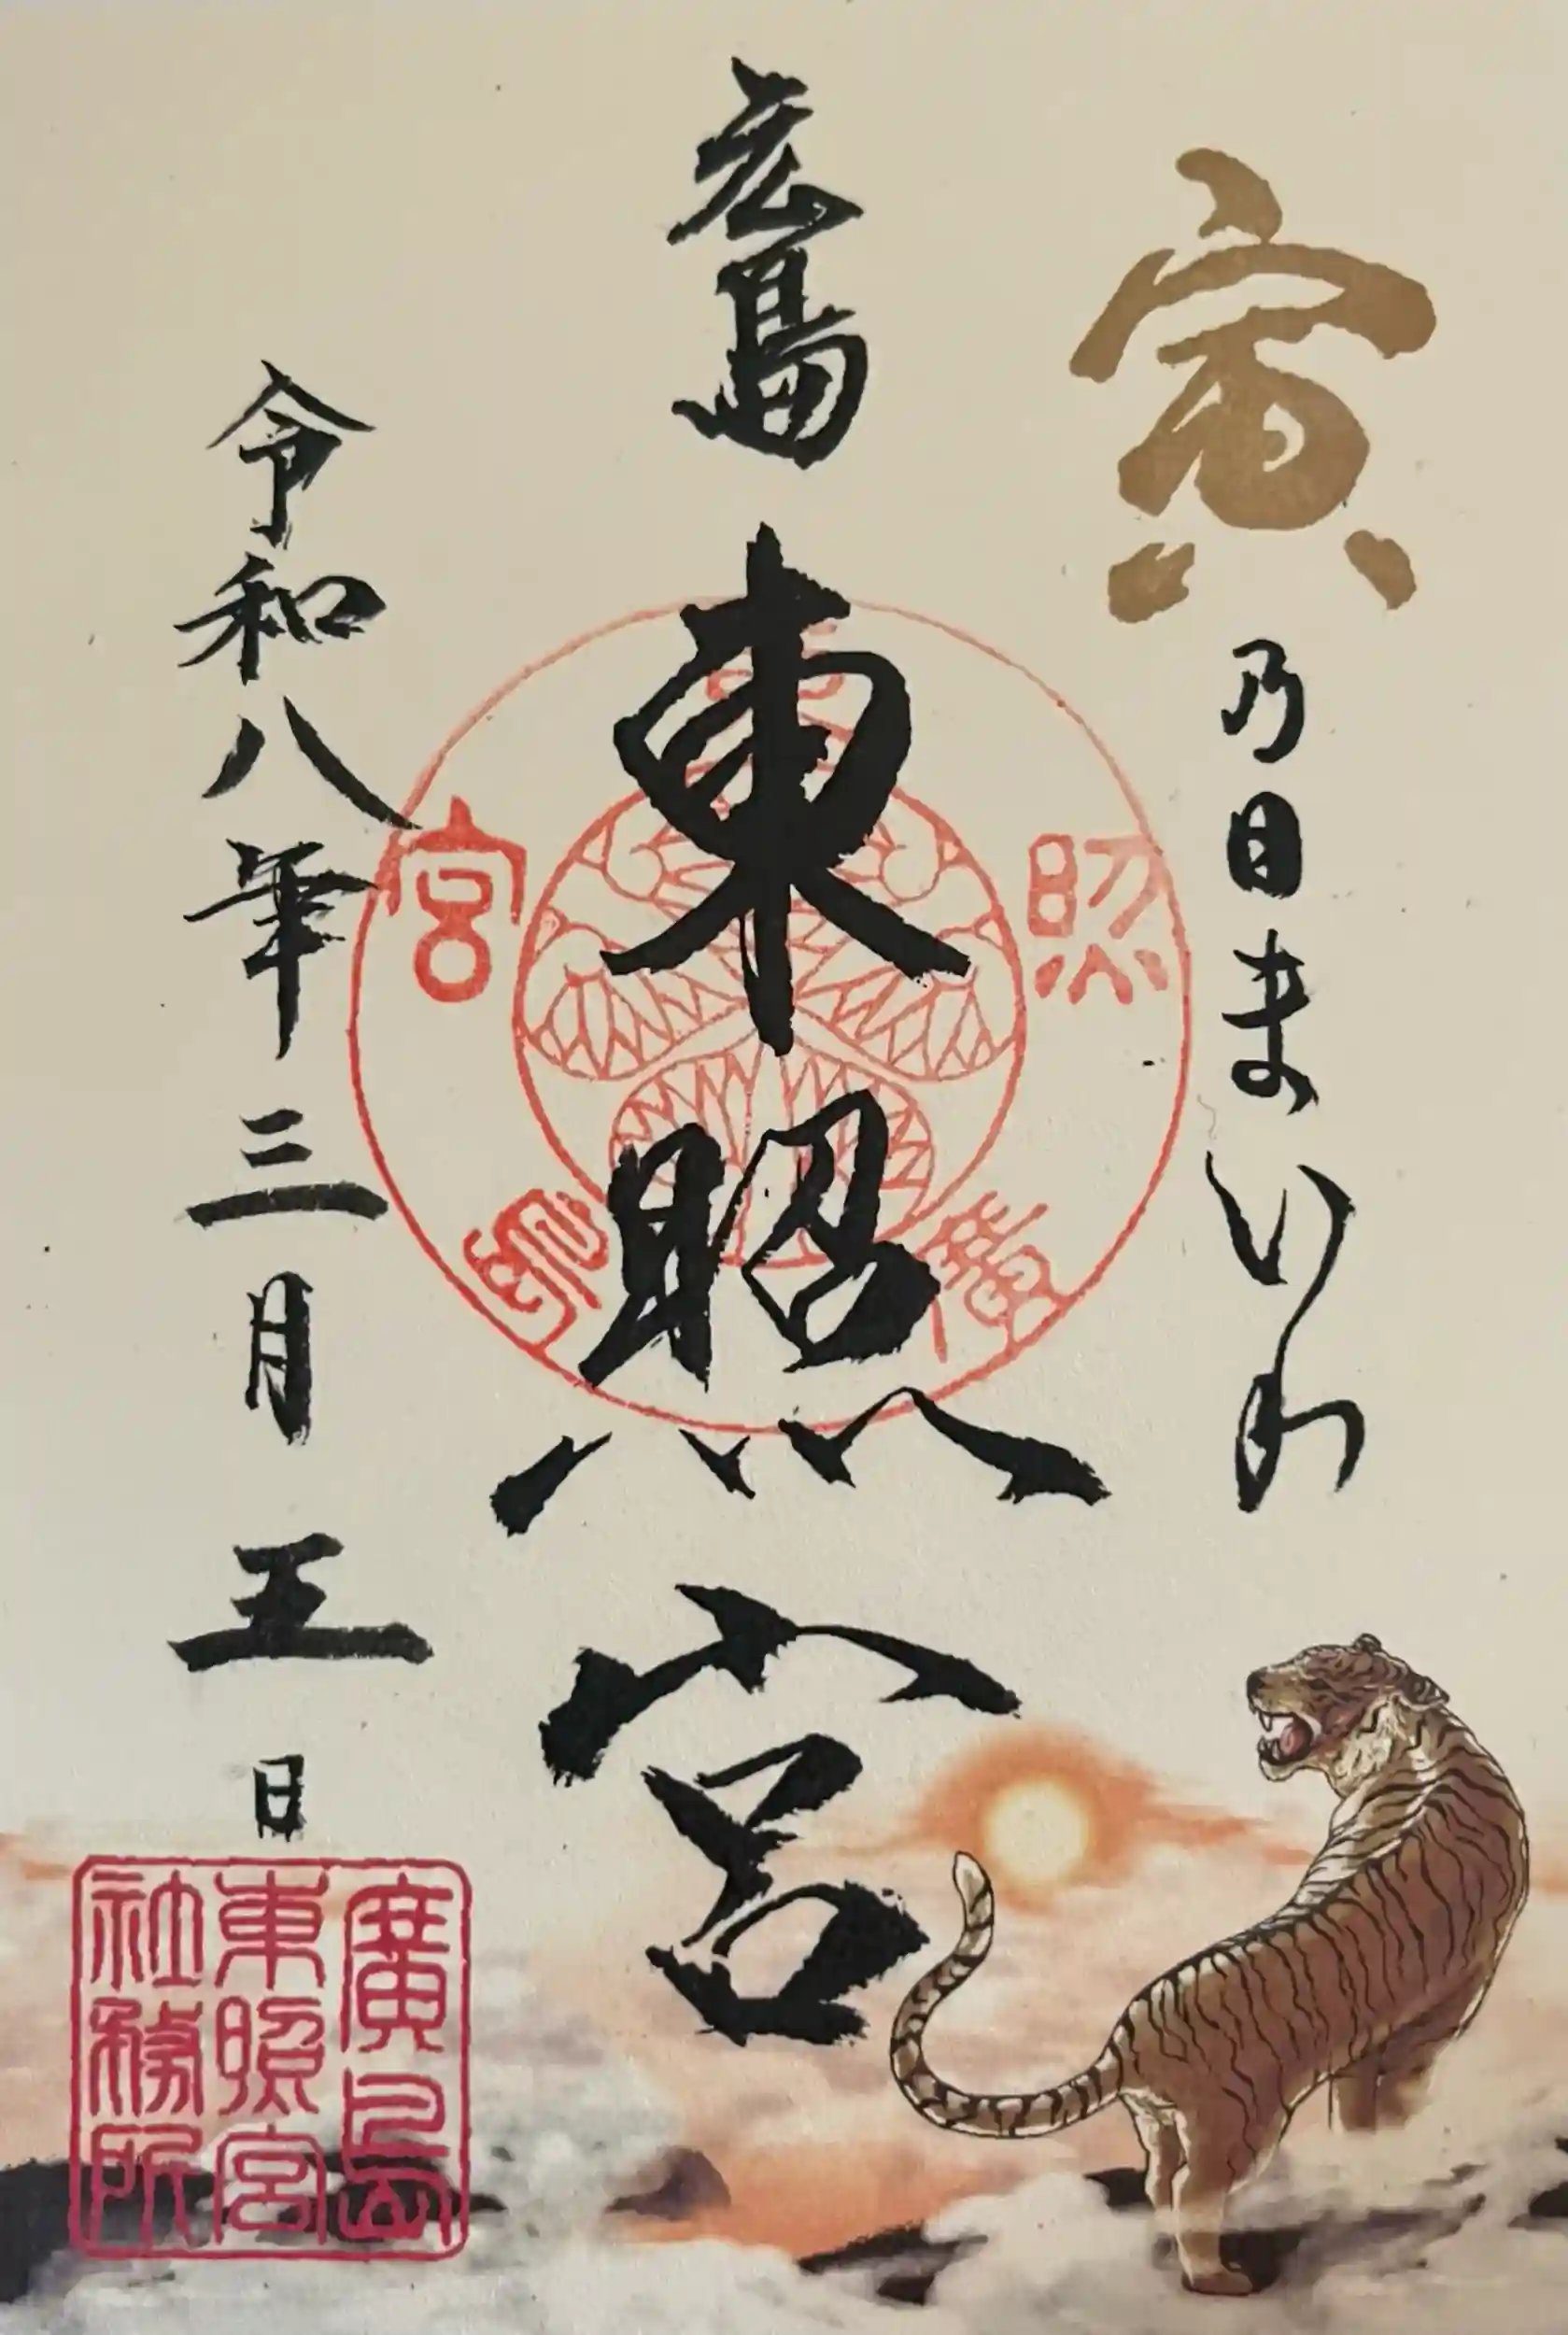 寅乃日まいり
広島東照宮
令和八年三月五日
廣島東照宮
廣島
東照宮
社務所